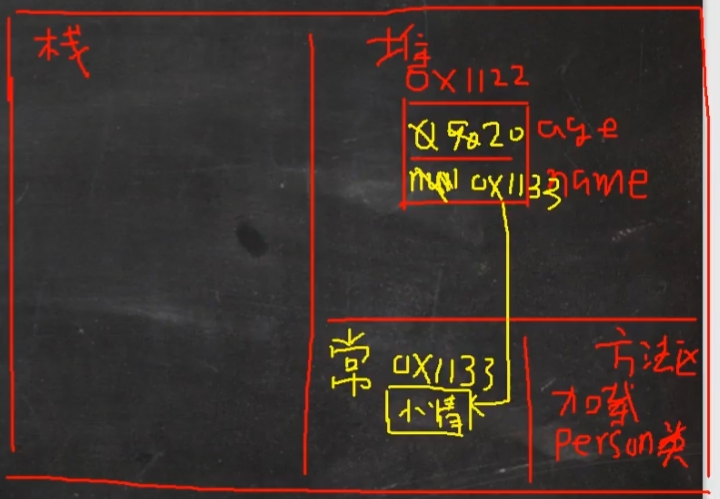 栈
堆
0x1122
90 20 age
0x1133 name
常 0x1133
小倩
方法区
加载
Person类